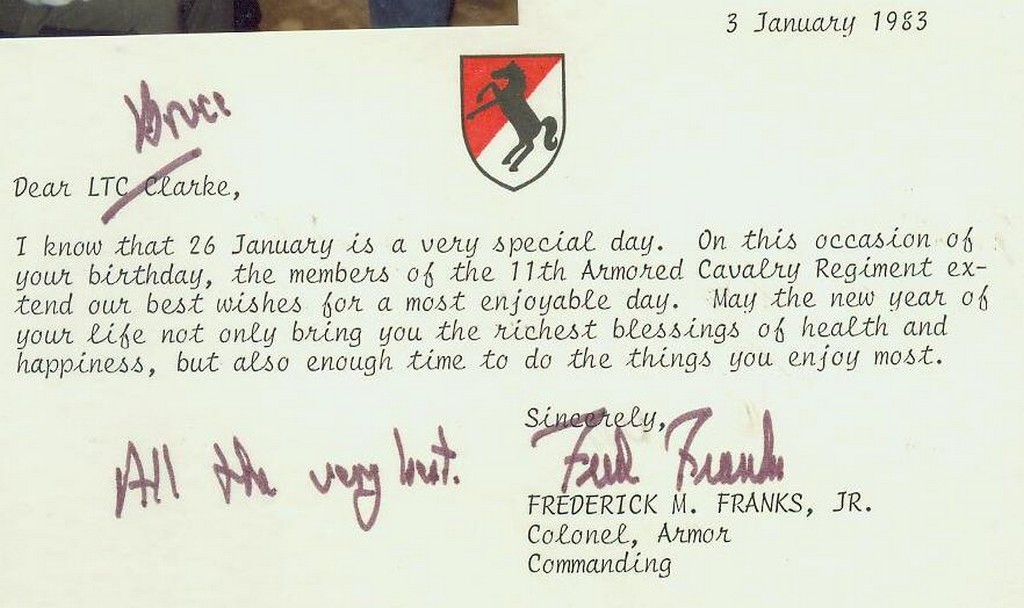 3 January 1983
Bruce
Dear LTC Clarke,
I know that 26 January is a very special day. On this occasion of
your birthday, the members of the 11th Armored Cavalry Regiment ex-
tend our best wishes for a most enjoyable day. May the new year of
your life not only bring you the richest blessings of health and
happiness, but also enough time to do the things you enjoy most.
Sincerely,
All the very best.
Fred Franks
FREDERICK M. FRANKS, JR.
Colonel, Armor
Commanding